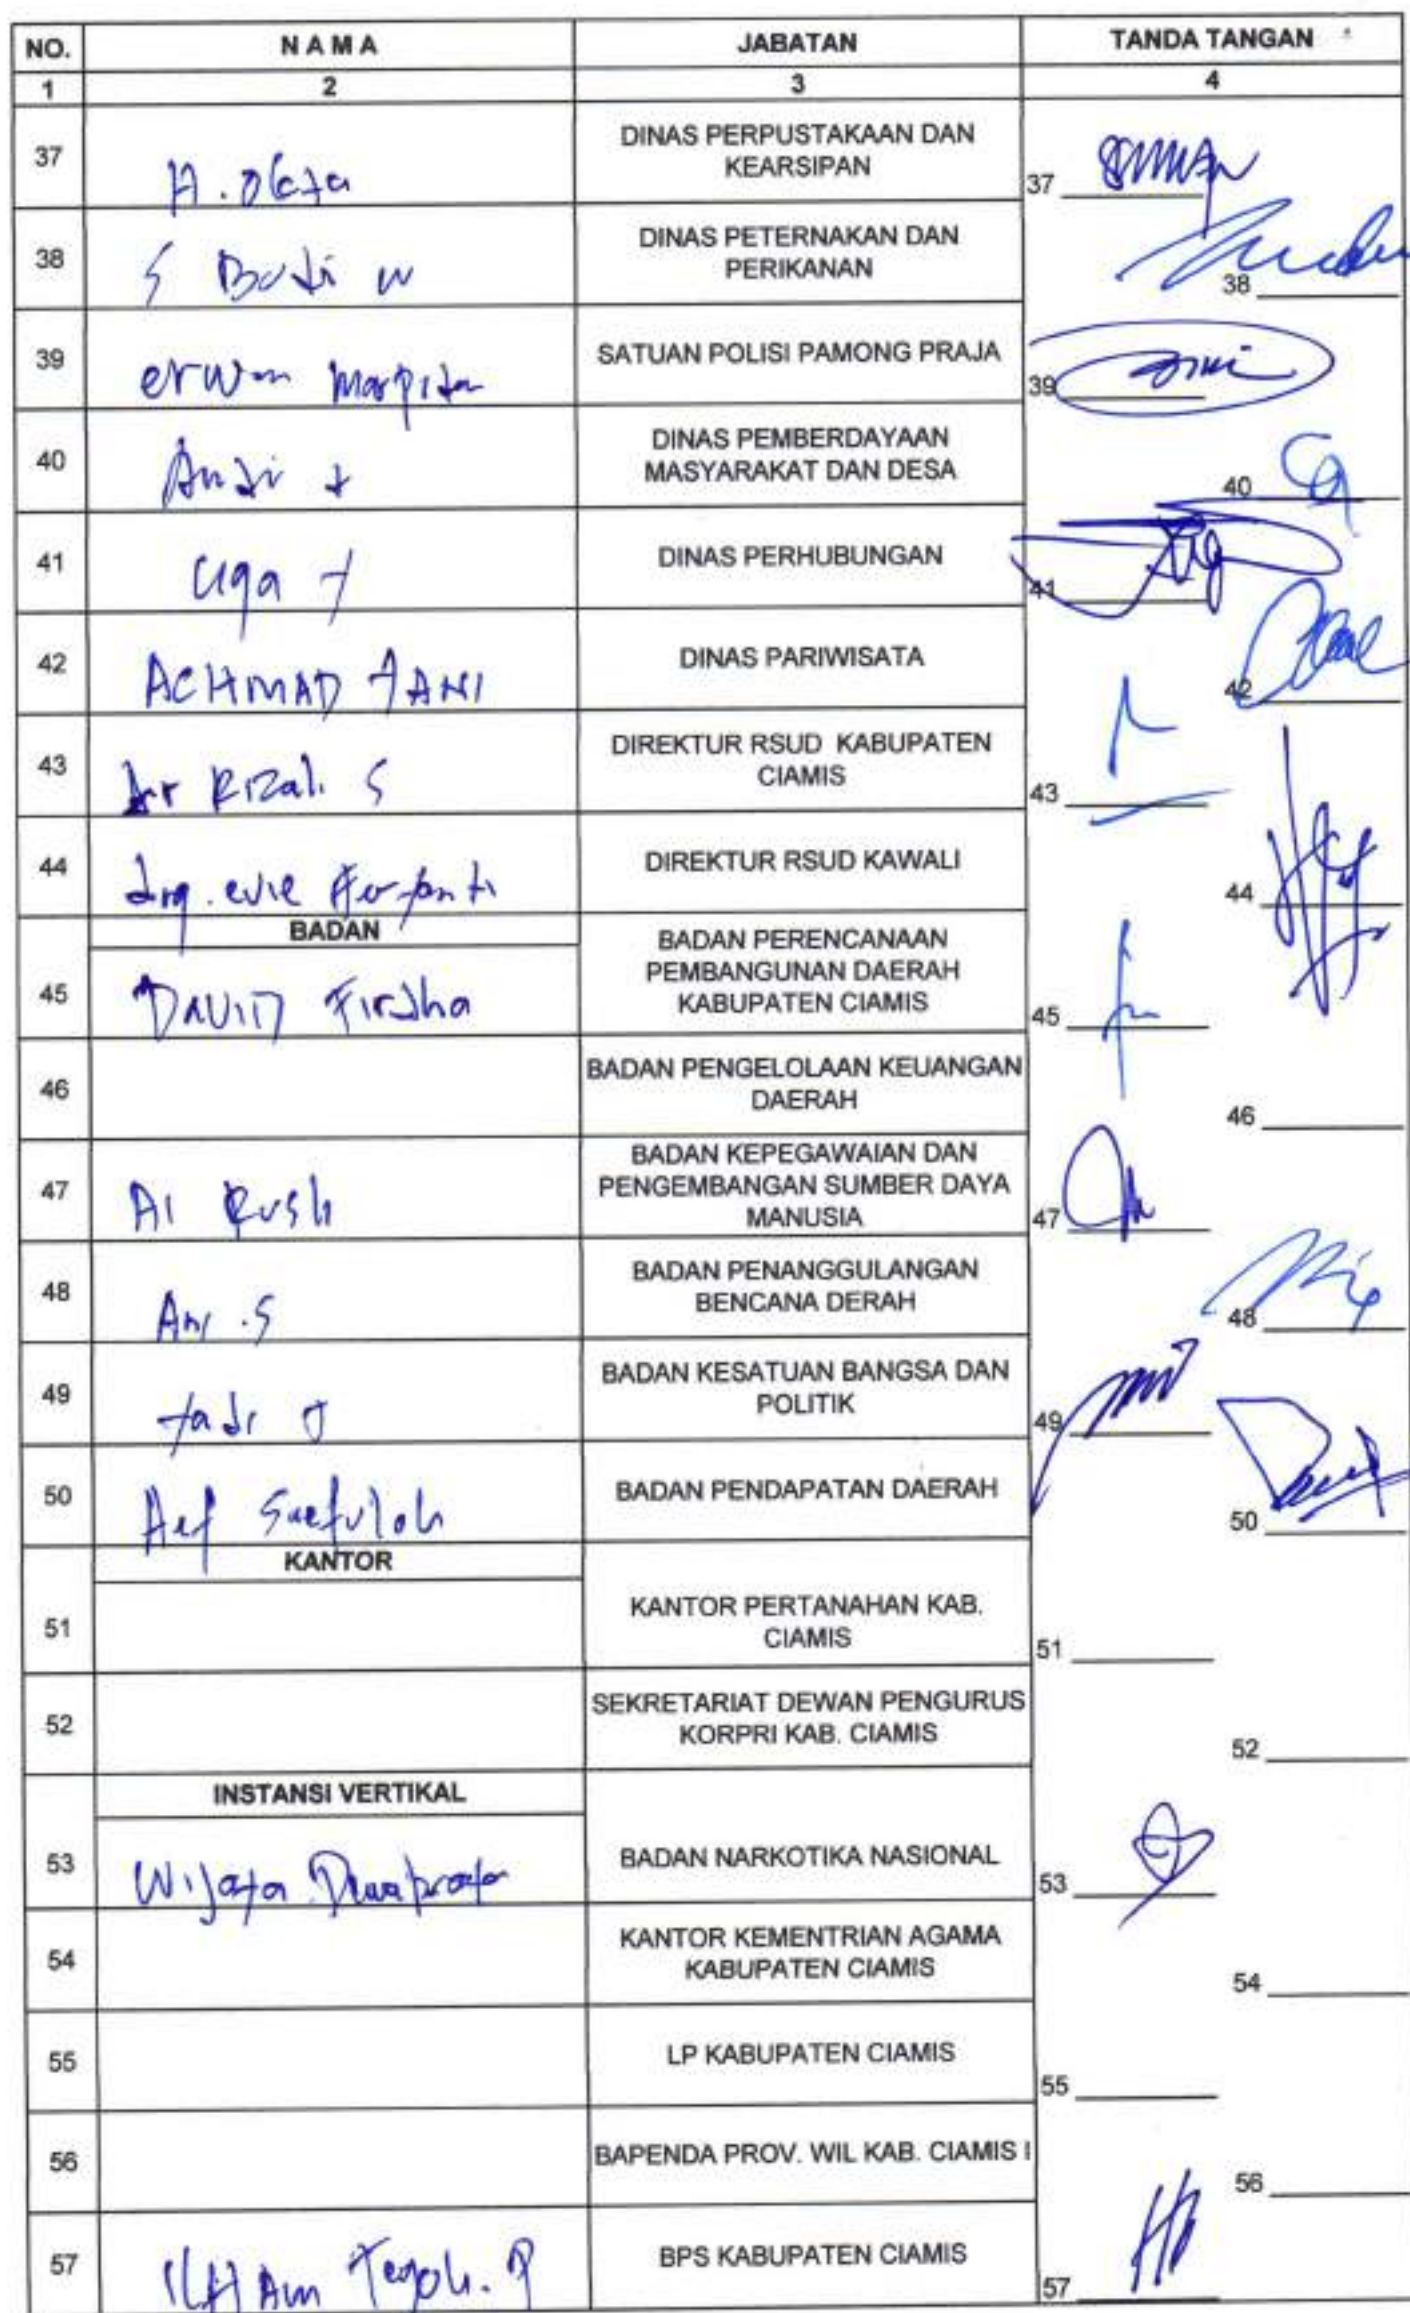 NO. NAMA JABATAN TANDA TANGAN
1 2 3 4
37 H. Okta DINAS PERPUSTAKAAN DAN
KEARSIPAN 37
38 S Budi W DINAS PETERNAKAN DAN
PERIKANAN 38
39 erwan SATUAN POLISI PAMONG PRAJA 39
40 Andi DINAS PEMBERDAYAAN
MASYARAKAT DAN DESA 40
41 Uga Y DINAS PERHUBUNGAN 41
42 ACHMAD YANI DINAS PARIWISATA 42
43 dr Rizali S DIREKTUR RSUD KABUPATEN
CIAMIS 43
44 drg. evie DIREKTUR RSUD KAWALI 44
BADAN
45 DAVID Firdha BADAN PERENCANAAN
PEMBANGUNAN DAERAH
KABUPATEN CIAMIS 45
46 BADAN PENGELOLAAN KEUANGAN
DAERAH 46
47 AI Rusli BADAN KEPEGAWAIAN DAN
PENGEMBANGAN SUMBER DAYA
MANUSIA 47
48 Ani . S BADAN PENANGGULANGAN
BENCANA DERAH 48
49 BADAN KESATUAN BANGSA DAN
POLITIK 49
50 Aef Saefuloh BADAN PENDAPATAN DAERAH 50
KANTOR
51 KANTOR PERTANAHAN KAB.
CIAMIS 51
52 SEKRETARIAT DEWAN PENGURUS
KORPRI KAB. CIAMIS 52
INSTANSI VERTIKAL
53 Wijaya BADAN NARKOTIKA NASIONAL 53
54 KANTOR KEMENTRIAN AGAMA
KABUPATEN CIAMIS 54
55 LP KABUPATEN CIAMIS 55
56 BAPENDA PROV. WIL KAB. CIAMIS I 56
57 ILHAM Teguh. P BPS KABUPATEN CIAMIS 57